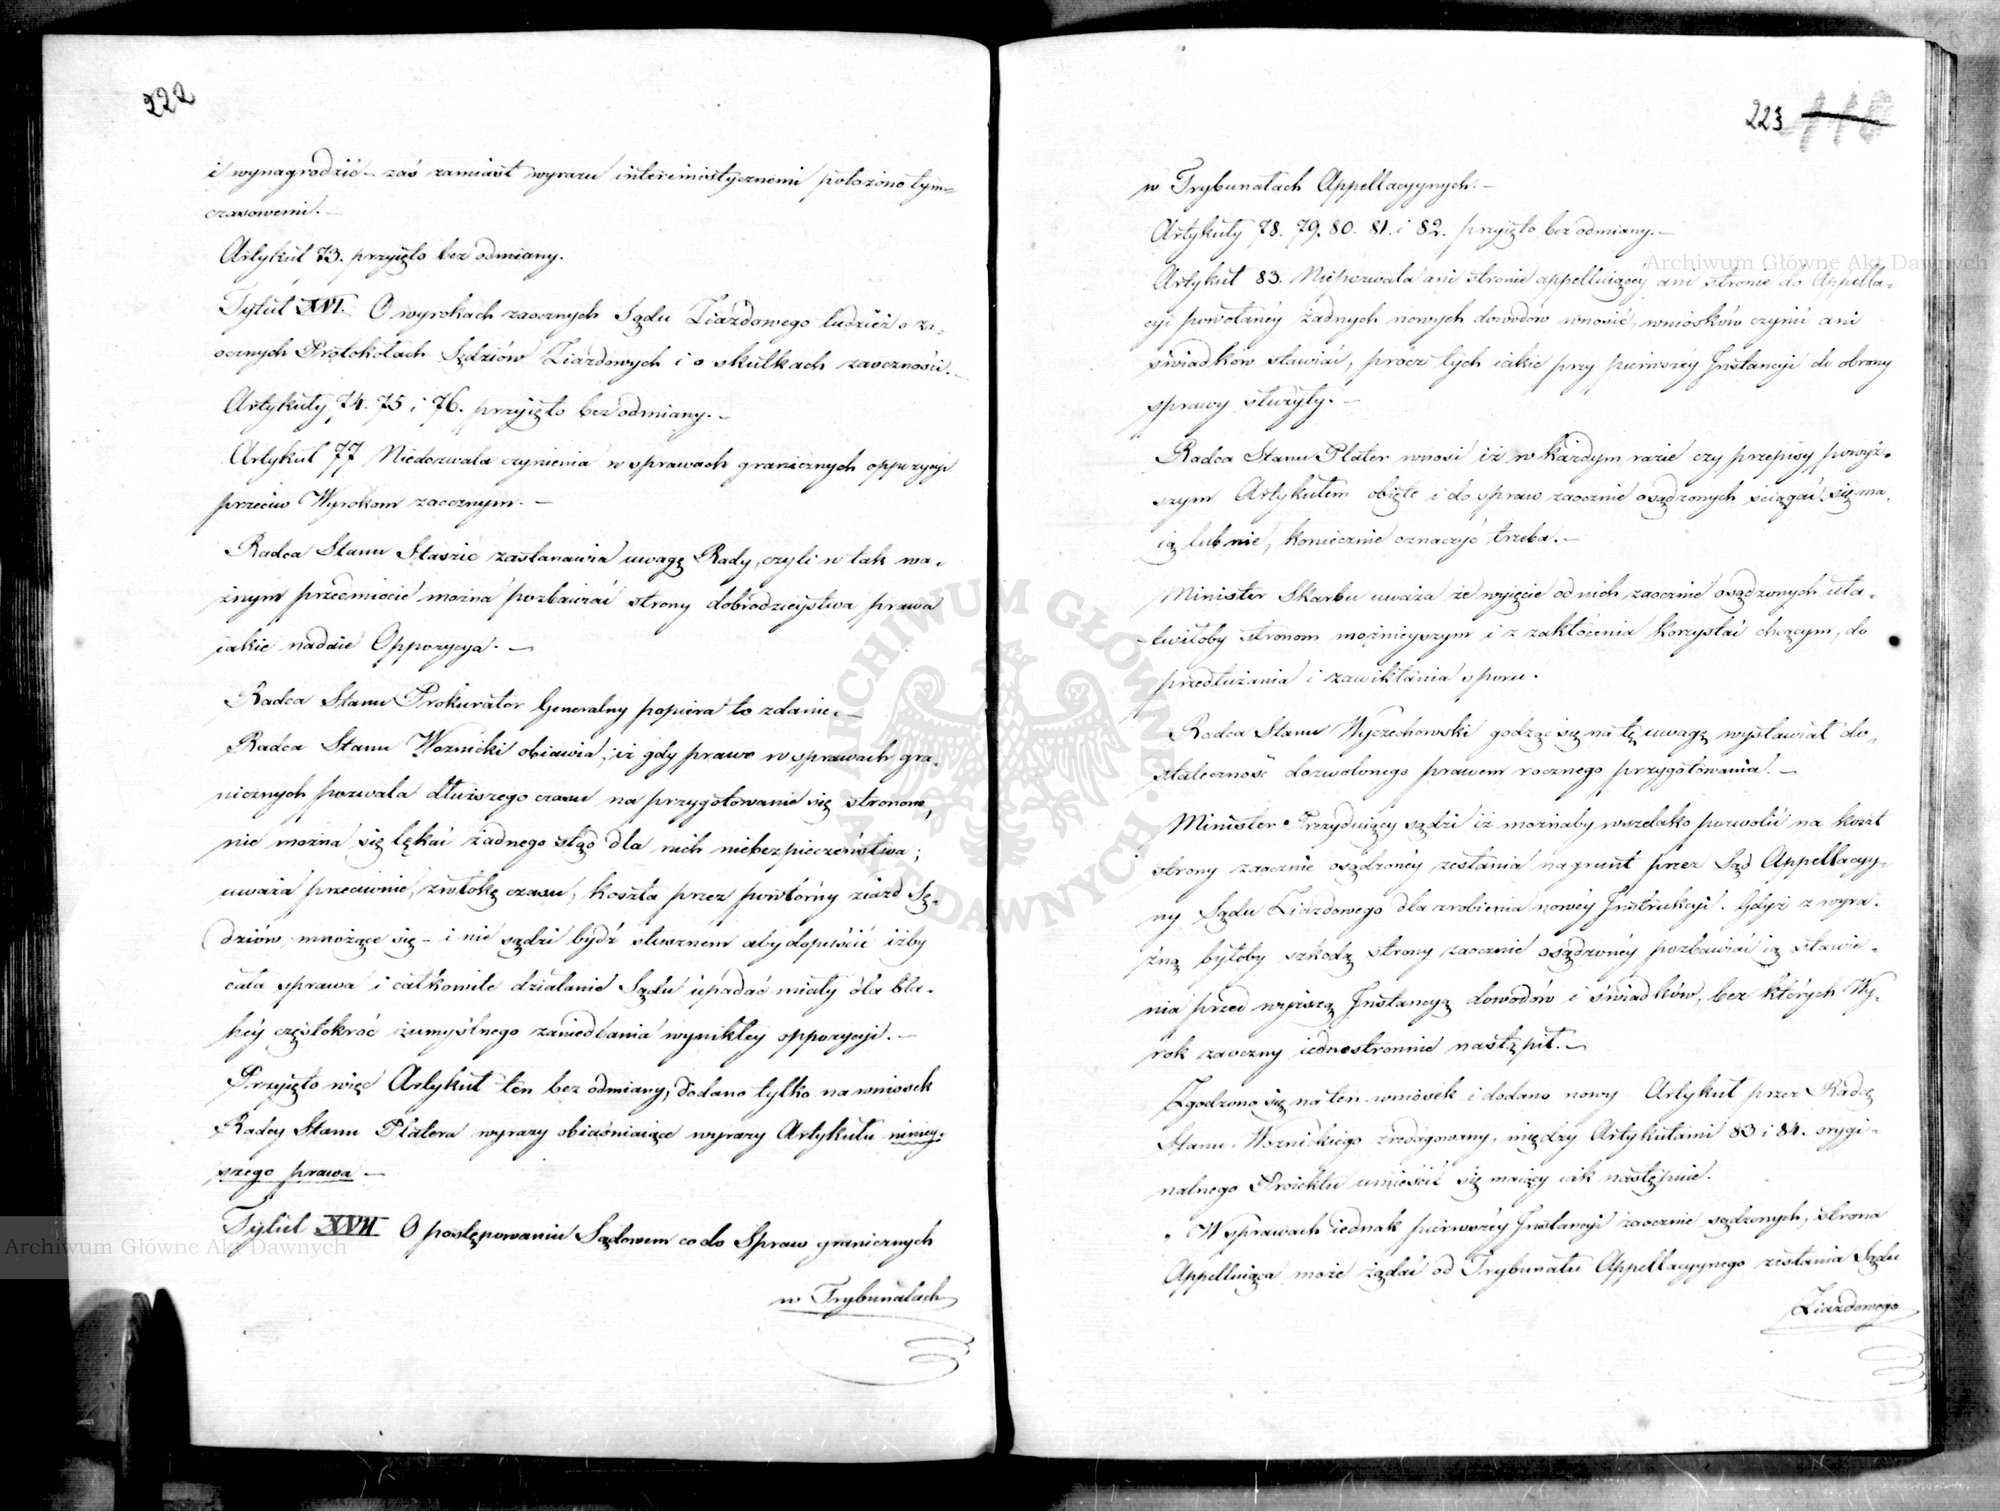 222
i wynagrodzić – zaś zamiast wyrazu interimistycznemi położono tym=
czasowemi. –
Artykuł 73. przyięto bez odmiany.
Tytuł XVI. O wyrokach zaocznych Sądu Ziazdowego tudzież o za-
ocznych Protokołach Sędziów Ziazdowych i o skutkach zaoczności. –
Artykuły 74. 75 i 76. przyięto bez odmiany. –
Artykuł 77 Niedozwala czynienia w sprawach granicznych oppozycyi
przeciw Wyrokom zaocznym. –
Radca Stanu Staszic zastanawia uwagę Rady, czyli w tak wa-
żnym przedmiocie można pozbawiać strony dobrodzieystwa prawa
iakie nadaie Oppozycya. –
Radca Stanu Prokurator Generalny popiera to zdanie. –
Radca Stanu Woznicki obiawia, iż gdy prawo w sprawach gra-
nicznych pozwala dłuższego czasu na przygotowanie się stronom,
nie można się lękać żadnego stąd dla nich niebezpieczeństwa;
uważa przeciwnie, zwłokę czasu, koszta przez powtórny ziazd Sę-
dziów mnożące się – i nie sądzi bydź słusznem aby dopuścić iżby
cała sprawa i całkowite działanie Sądu upadać miały dla bła-
hey częstokroć i umyślnego zaniedbania wynikłey oppozycyi. –
Przyięto więc Artykuł ten bez odmiany, dodano tylko na wniosek
Radcy Stanu Platera wyrazy obiaśniaiące wyrazy Artykułu niniey-
szego prawa –
Tytuł XVII O postępowaniu Sądowem co do Spraw granicznych
w Trybunałach
223 118
w Trybunałach Appellacyynych. –
Artykuły 78. 79. 80. 81. i 82. przyięto bez odmiany. –
Artykuł 83. Niepozwala ani stronie appelluiącey ani stronie do Appella-
cyi powołaney żadnych nowych dowodów wnosić, wniosków czynić ani
świadków stawiać, procz tych iakie przy pierwszey Instancyi do obrony
sprawy służyły. –
Radca Stanu Plater wnosi iż w każdym razie czy przepisy powyż-
szym Artykułem obięte i do spraw zaocznie osądzonych ściągać się ma-
ią lub nie, koniecznie oznaczyć trzeba. –
Minister Skarbu uważa że wyięcie od nich zaocznie osądzonych uła-
twiłoby stronom możnieyszym i z zakłócenia korzystać chcącym, do
przedłużania i zawikłania sporu.
Radca Stanu Wyczechowski godząc się na tę uwagę wystawiał do-
stateczność dozwolonego prawem rocznego przygotowania. –
Minister Prezyduiący sądzi iż możnaby wszelako pozwolić na koszt
strony zaocznie osądzoney zesłania na grunt przez Sąd Appellacyy-
ny Sądu Ziazdowego dla zrobienia nowey Instrukcyi. Gdyż z wyra-
źną byłoby szkodą strony zaocznie osądzoney pozbawiać ią stawie-
nia przed wyższą Instancyą dowodów i świadków, bez których Wy-
rok zaoczny iednostronnie nastąpił. –
Zgodzono się na ten wniosek i dodano nowy Artykuł przez Radcę
Stanu Woznickiego zredagowany, między Artykułami 83 i 84. orygi-
nalnego Proiektu umieścić się maiący iak następuie.
„ W sprawach iednak pierwszey Instancyi zaocznie sądzonych, strona
Appelluiąca może żądać od Trybunału Appellacyynego zesłania Sądu
Ziazdowego
Archiwum Główne Akt Dawnych
Archiwum Główne Akt Dawnych
ARCHIWUM GŁÓWNE AKT DAWNYCH